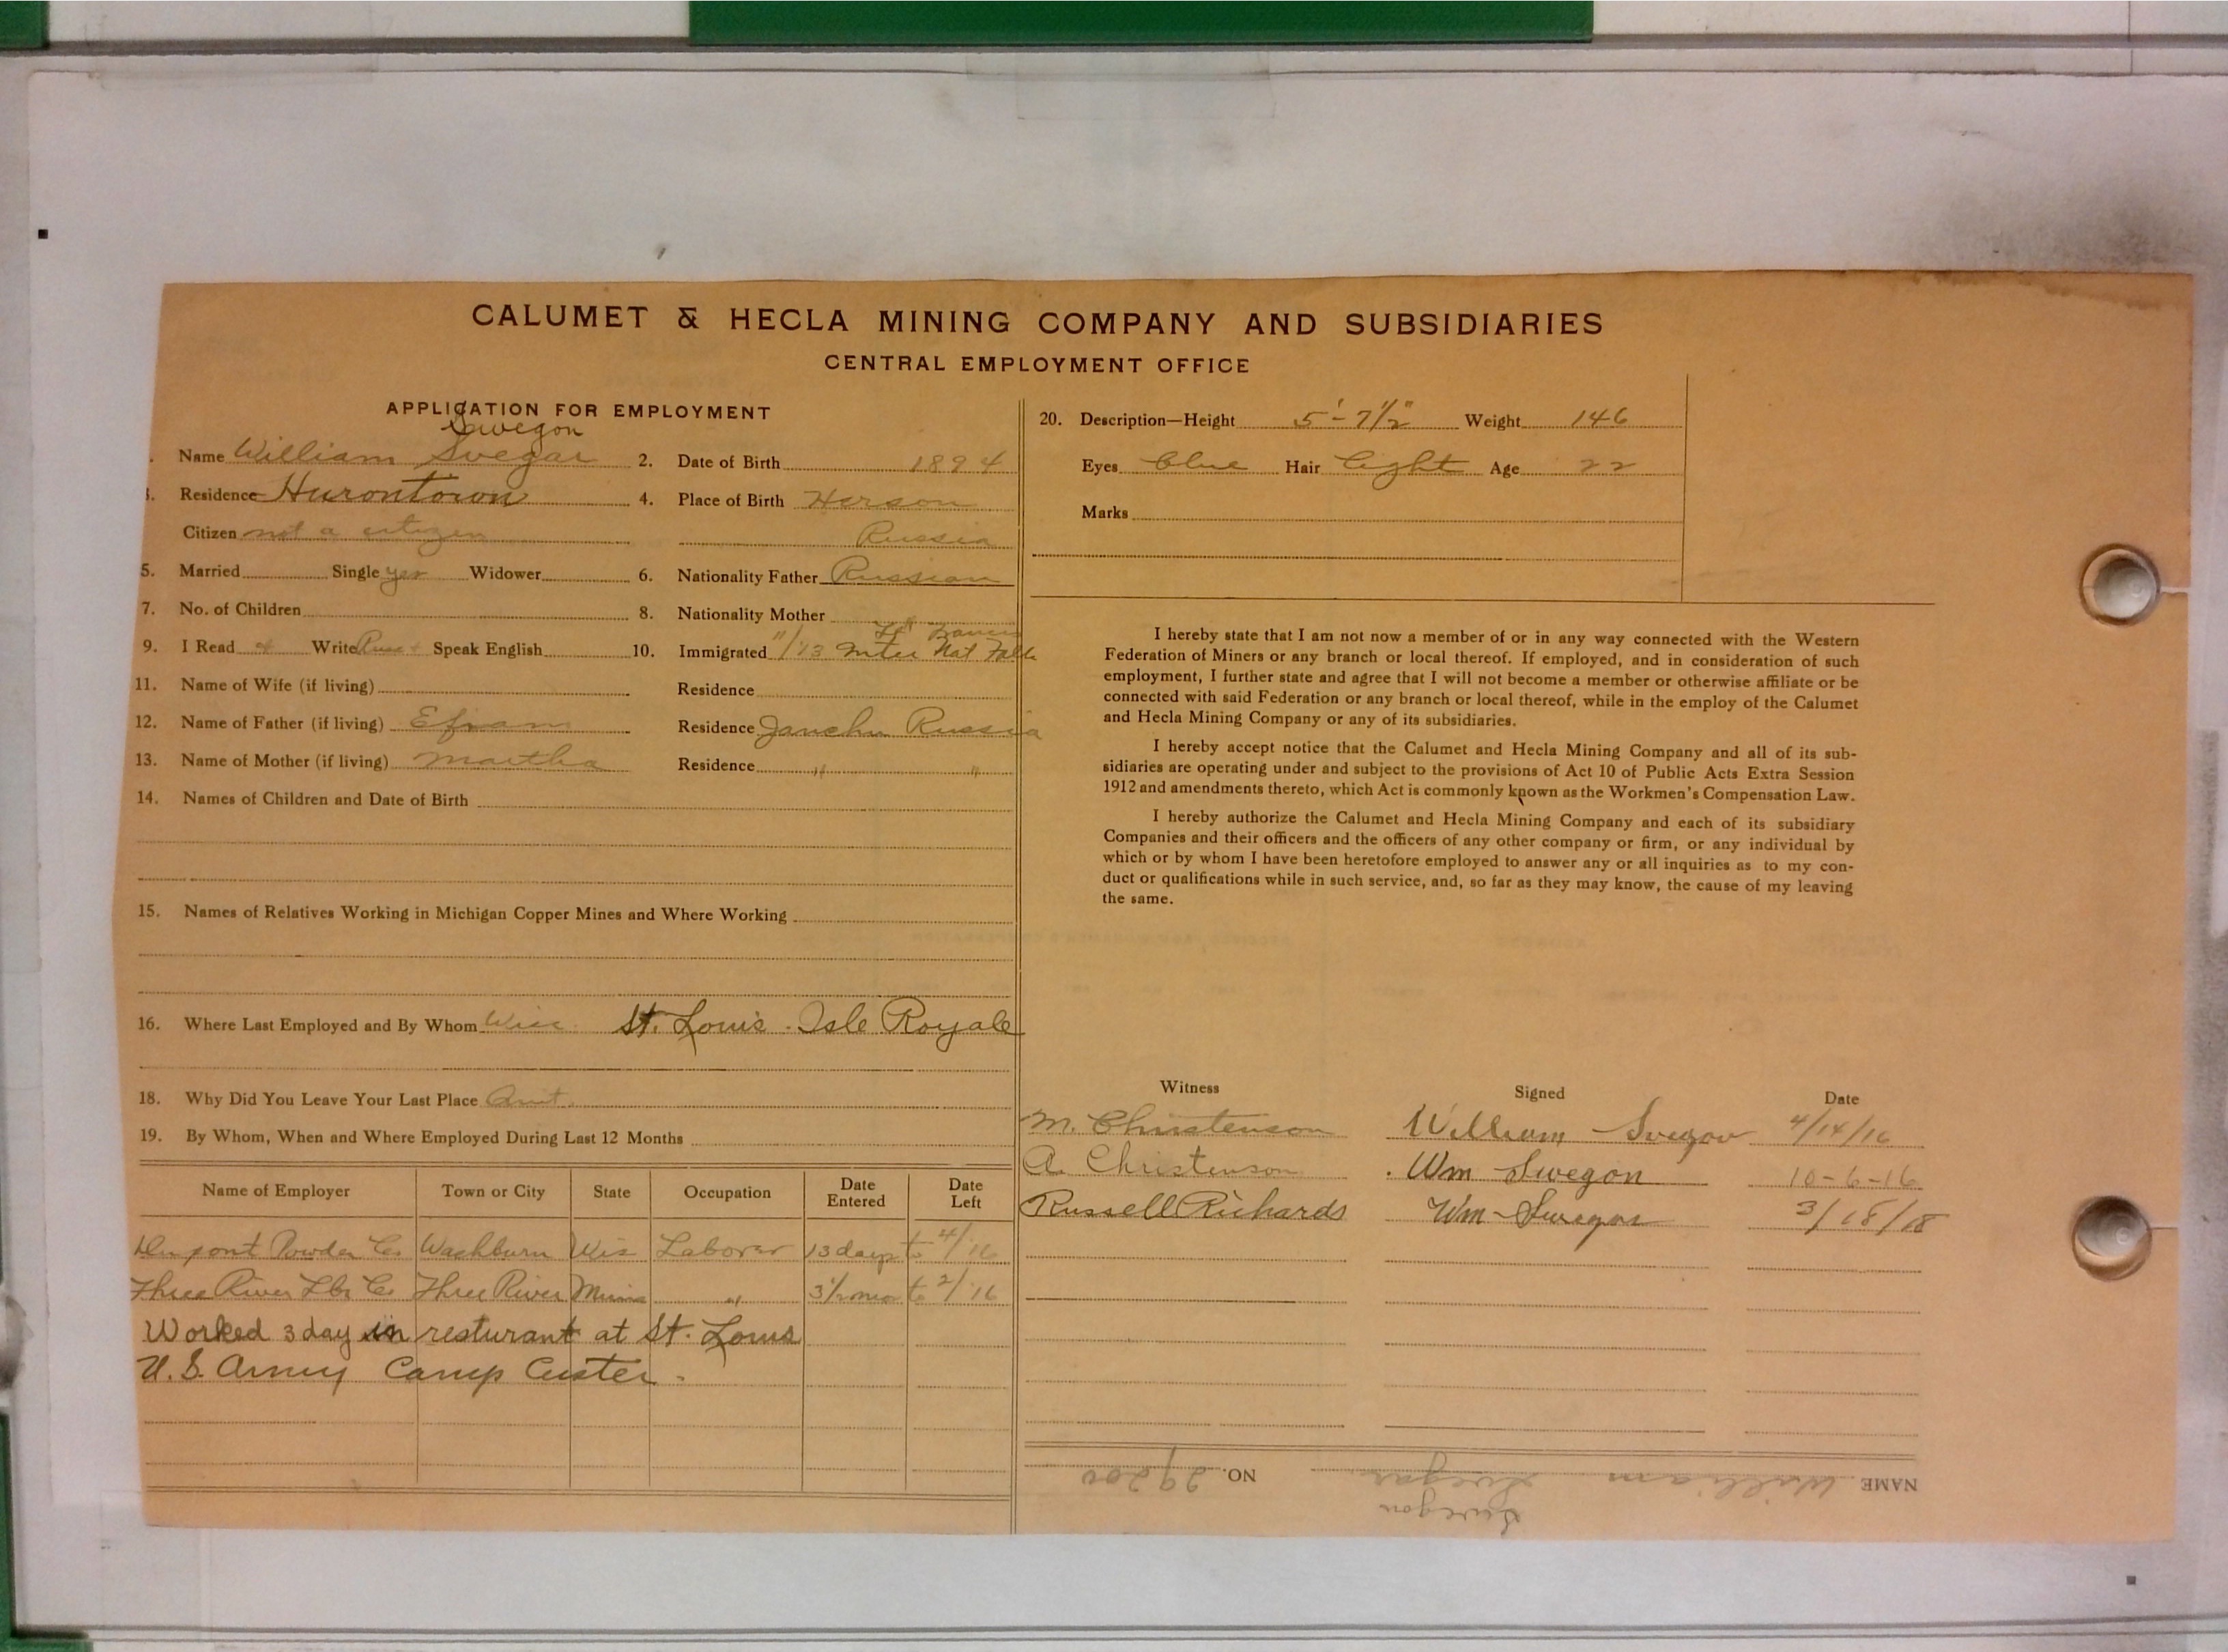 CALUMET & HECLA MINING COMPANY AND SUBSIDIARIES
CENTRAL EMPLOYMENT OFFICE
APPLICATION FOR EMPLOYMENT
Swegon
Name William Svegar
2. Date of Birth 1894
Residence Hurontown
4. Place of Birth Herson
Citizen not a citizen
Russia
5. Married Single yes Widower
6. Nationality Father Russian
7. No. of Children
8. Nationality Mother
Ft Francis
9. I Read Write Russ Speak English
10. Immigrated 11/13 Inter Nat Falls
11. Name of Wife (if living)
Residence
12. Name of Father (if living) Efram
Residence Janchu Russia
13. Name of Mother (if living) Martha
Residence " "
14. Names of Children and Date of Birth
15. Names of Relatives Working in Michigan Copper Mines and Where Working
16. Where Last Employed and By Whom Wisc. St. Louis. Isle Royale
18. Why Did You Leave Your Last Place Quit.
19. By Whom, When and Where Employed During Last 12 Months
Name of Employer Town or City State Occupation Date Entered Date Left
Du pont Powder Co. Washburn Wis Laborer 13 days to 4/16
Three River Lbr Co. Three River Minn " 3 1/2 mos to 2/16
Worked 3 day in resturant at St. Louis
U.S. Army Camp Custer.
20. Description—Height 5'-7 1/2" Weight 146
Eyes blue Hair light Age 22
Marks
I hereby state that I am not now a member of or in any way connected with the Western
Federation of Miners or any branch or local thereof. If employed, and in consideration of such
employment, I further state and agree that I will not become a member or otherwise affiliate or be
connected with said Federation or any branch or local thereof, while in the employ of the Calumet
and Hecla Mining Company or any of its subsidiaries.
I hereby accept notice that the Calumet and Hecla Mining Company and all of its sub-
sidiaries are operating under and subject to the provisions of Act 10 of Public Acts Extra Session
1912 and amendments thereto, which Act is commonly known as the Workmen's Compensation Law.
I hereby authorize the Calumet and Hecla Mining Company and each of its subsidiary
Companies and their officers and the officers of any other company or firm, or any individual by
which or by whom I have been heretofore employed to answer any or all inquiries as to my con-
duct or qualifications while in such service, and, so far as they may know, the cause of my leaving
the same.
Witness Signed Date
M. Christenson William Svegov 4/14/16
A. Christenson . Wm Swegon 10-6-16
Russell Richards Wm Swegon 3/18/18
Swegon
NAME William Svegar NO. 29200